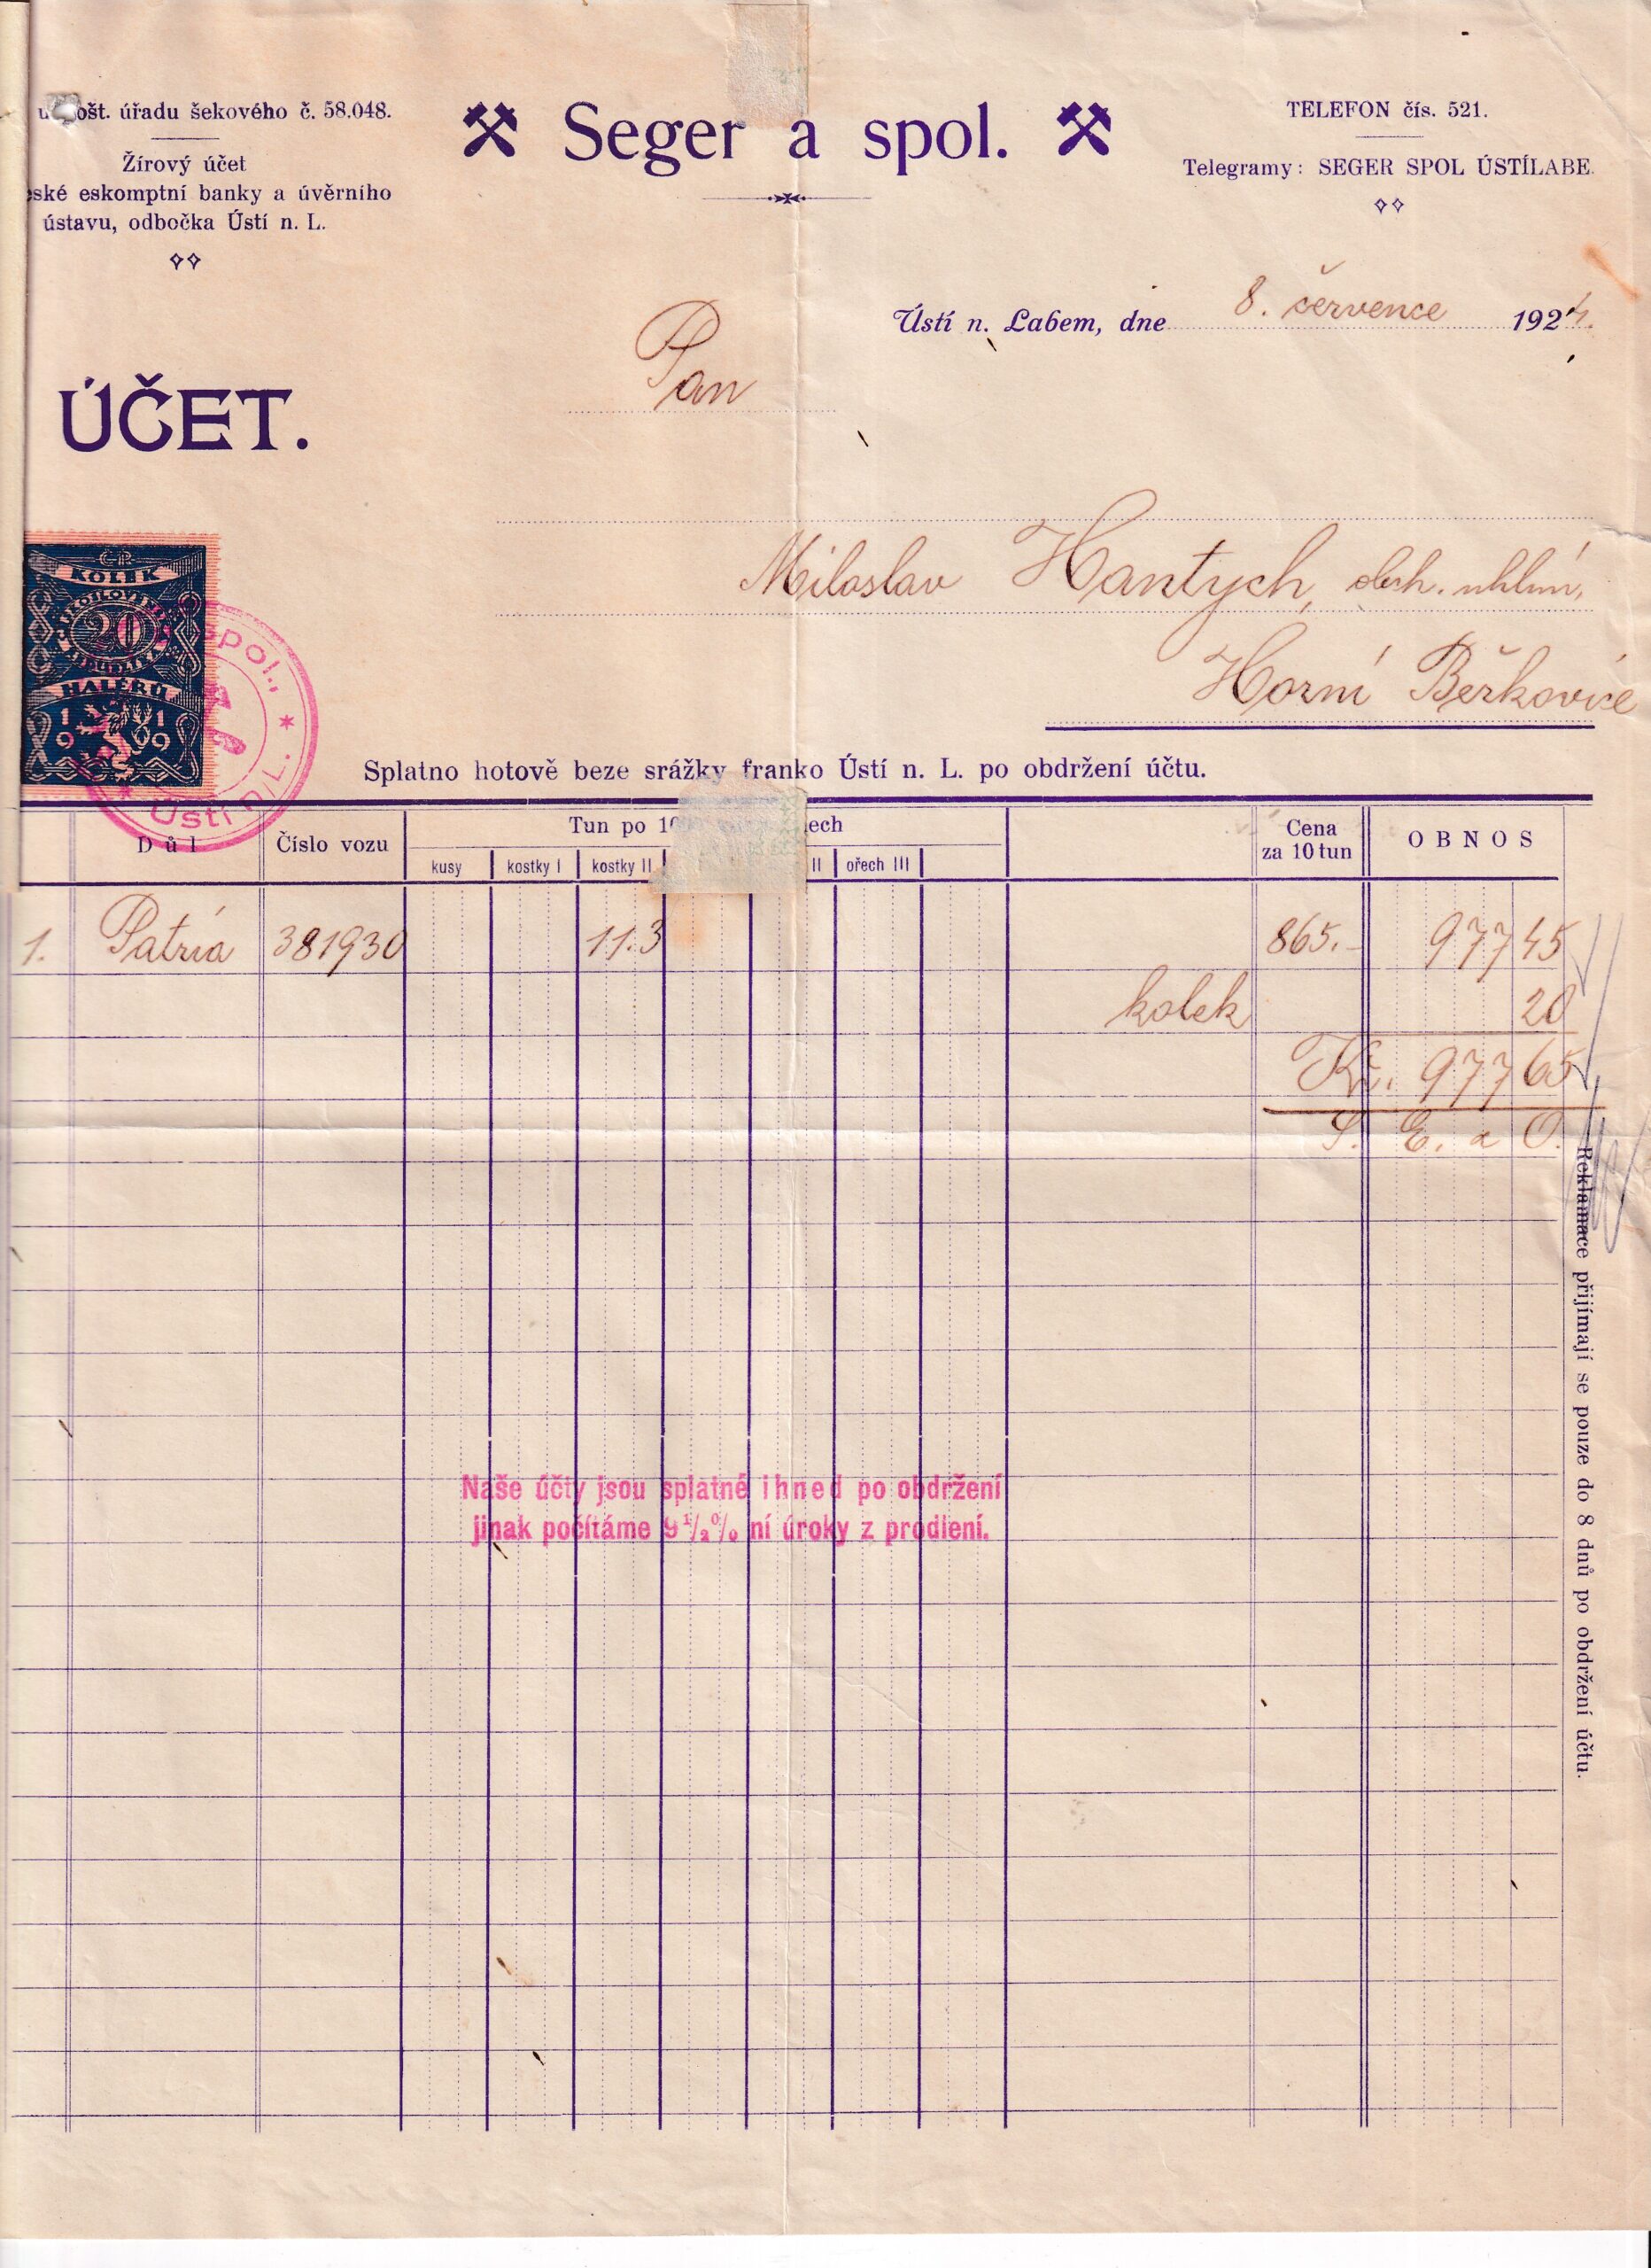 ošt. úřadu šekového č. 58.048.
Žírový účet
ské eskomptní banky a úvěrního
ústavu, odbočka Ústí n. L.
Seger a spol.
TELEFON čís. 521.
Telegramy: SEGER SPOL ÚSTÍLABE.
Ústí n. Labem, dne 8. července 1924.
ÚČET.
Pan
Miloslav Hantych, obch. uhlím,
Horní Beřkovice
ČR
KOLEK
20
HALÉŘŮ
1919
spol., * Ústí n. L. *
Splatno hotově beze srážky franko Ústí n. L. po obdržení účtu.
Důl Číslo vozu Tun po 10 ech Cena za 10 tun OBNOS
kusy kostky I kostky II II ořech III
1. Patria 381930 11.3 865.- 977 45
kolek 20
Kč. 977 65
S. E. a O.
Reklamace přijímají se pouze do 8 dnů po obdržení účtu.
Naše účty jsou splatné ihned po obdržení
jinak počítáme 9½% ní úroky z prodlení.